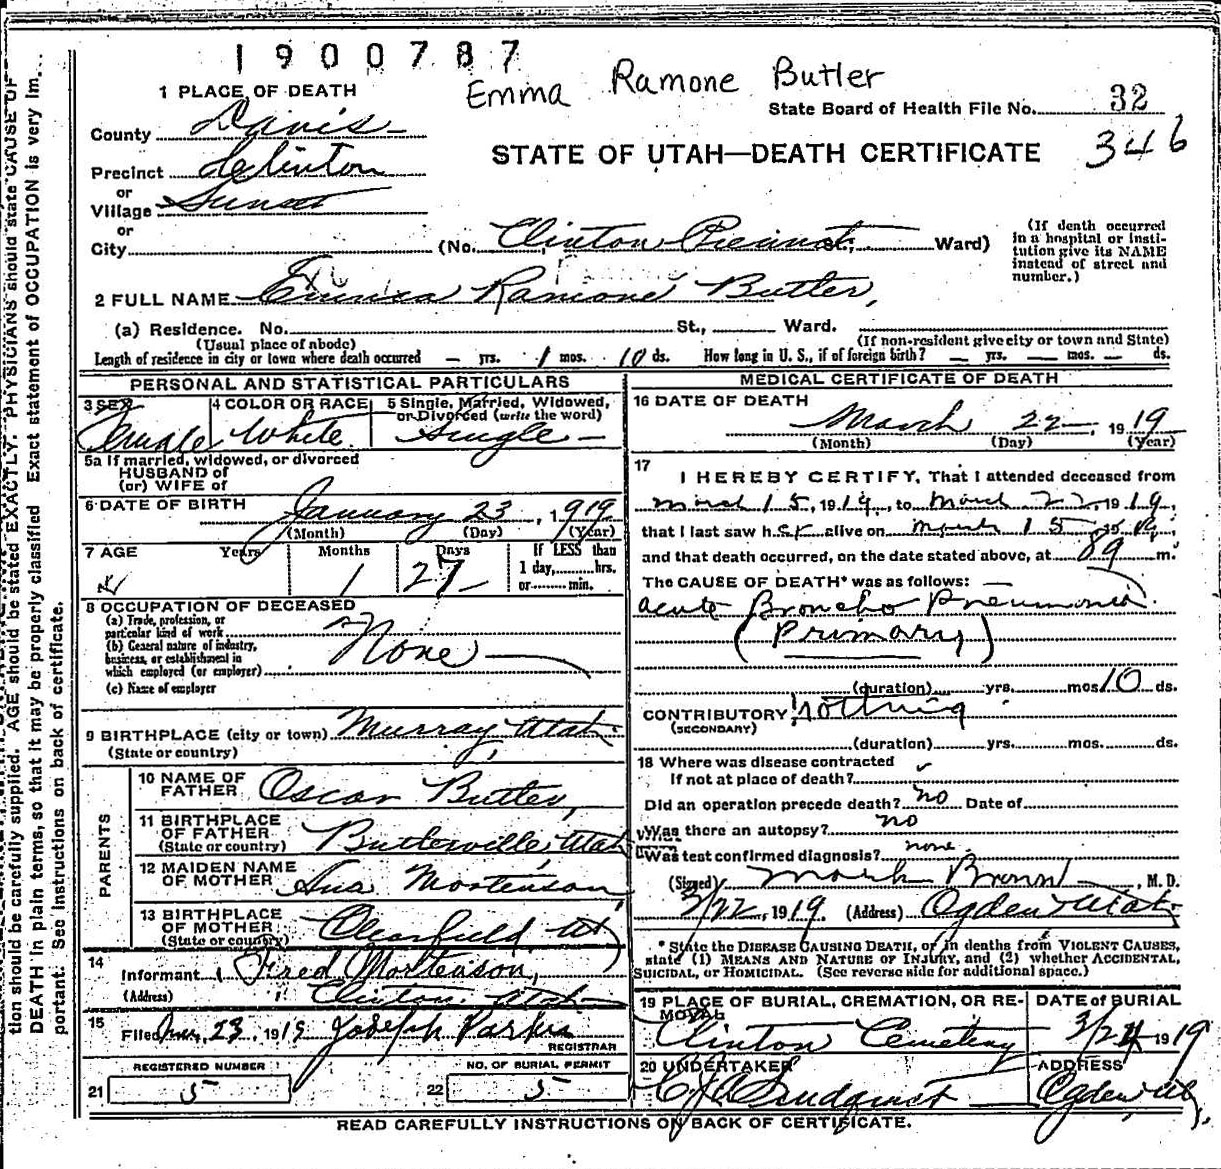 1900787
Emma Ramone Butler
State Board of Health File No. 32
346
STATE OF UTAH—DEATH CERTIFICATE
1 PLACE OF DEATH
County Davis
Precinct Clinton
or
Village Sunset
or
City (No. Clinton Precinct St., Ward)
(If death occurred in a hospital or insti-
tution give its NAME
instead of street and
number.)
2 FULL NAME Emma Ramone Butler,
(a) Residence. No. St., Ward.
(Usual place of abode) (If non-resident give city or town and State)
Length of residence in city or town where death occurred — yrs. 1 mos. 10 ds. How long in U. S., if of foreign birth? — yrs. — mos. — ds.
PERSONAL AND STATISTICAL PARTICULARS
3 SEX 4 COLOR OR RACE 5 Single, Married, Widowed,
or Divorced (write the word)
Female White Single —
5a If married, widowed, or divorced
HUSBAND of
(or) WIFE of
6 DATE OF BIRTH January 23, 1919
(Month) (Day) (Year)
7 AGE Years Months Days If LESS than
1 day, hrs.
or min.
1 27
8 OCCUPATION OF DECEASED
(a) Trade, profession, or
particular kind of work
(b) General nature of industry,
business, or establishment in
which employed (or employer)
(c) Name of employer
None
9 BIRTHPLACE (city or town) Murray, Utah
(State or country)
PARENTS
10 NAME OF
FATHER Oscar Butler,
11 BIRTHPLACE
OF FATHER
(State or country) Butlerville, Utah
12 MAIDEN NAME
OF MOTHER Ana Mortenson
13 BIRTHPLACE
OF MOTHER
(State or country) Clearfield, Ut
14
Informant Fred Mortenson,
(Address) Clinton, Utah
15
Filed Mar, 23, 1919 Joseph Parker
REGISTRAR
REGISTERED NUMBER NO. OF BURIAL PERMIT
21 5 22 5
MEDICAL CERTIFICATE OF DEATH
16 DATE OF DEATH
March 22, 1919
(Month) (Day) (Year)
17
I HEREBY CERTIFY, That I attended deceased from
March 15, 1919, to March 22, 1919,
that I last saw her alive on March 15 1919,
and that death occurred, on the date stated above, at m.
The CAUSE OF DEATH* was as follows: —
acute Broncho Pneumonia
(Primary)
(duration) yrs. mos. 10 ds.
CONTRIBUTORY nothing
(SECONDARY)
(duration) yrs. mos. ds.
18 Where was disease contracted
If not at place of death?
Did an operation precede death? no Date of
Was there an autopsy? no
What test confirmed diagnosis? none.
(Signed) Mark Brown, M. D.
3/22, 1919. (Address) Ogden Utah
* State the DISEASE CAUSING DEATH, or in deaths from VIOLENT CAUSES,
state (1) MEANS AND NATURE OF INJURY, and (2) whether ACCIDENTAL,
SUICIDAL, or HOMICIDAL. (See reverse side for additional space.)
19 PLACE OF BURIAL, CREMATION, OR RE-
MOVAL DATE of BURIAL
Clinton Cemetery 3/24 1919
20 UNDERTAKER ADDRESS
Lindquist Ogden Ut,
READ CAREFULLY INSTRUCTIONS ON BACK OF CERTIFICATE.
tion should be carefully supplied. AGE should be stated EXACTLY. PHYSICIANS should state CAUSE OF
DEATH in plain terms, so that it may be properly classified. Exact statement of OCCUPATION is very im-
portant. See instructions on back of certificate.